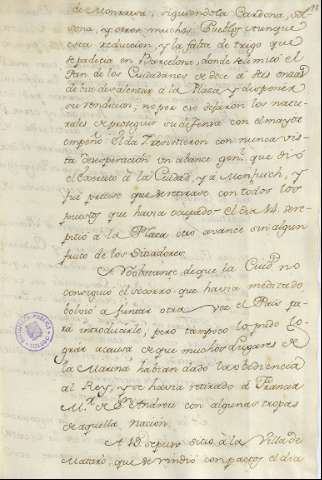 de Monrava, siguiendola Cardona, Sol
sona, y otros muchos Pueblos, y aunque
esta reduccion, y la falta de trigo que
se padecia en Barcelona, donde se limitò el
Pan de los Ciudadanos de doce à seis onzas
debia desalentar à la Plaza y disponer
su rendicion, no por eso dejaron los natu
rales de proseguir su defensa con el mayor
empeño. El dia 7 resistieron con nunca vis
ta desesperacion un abance gen.l que diò
el Exercito à la Ciudad, y à Monjuich, y
fuè preciso que se retirase con todos los
puestos que havia ocupados. El dia 14 se re
pitiò à la Plaza otro avance sin algun
fruto de los Sitiadores.
A Voluntario de que la Ciud.d no
consiguiò el socorro que havia meditado
bolviò à juntar otra vez el País pa
ra introducirle; pero tampoco lo pudo lo
grar à causa de que muchos Lugares de
la Marina habian dado la obediencia
al Rey, y se havia retirado à Francia
M.r de S.n Andreu con algunas tropas
de aquella nacion.
A 18 se puso sitio à la Villa de
Mataró, que se rindiò con pactos el dia